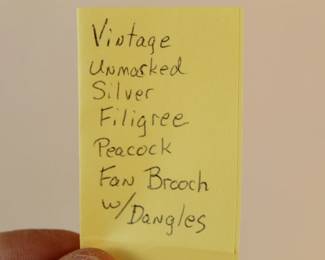 Vintage
Unmarked
Silver
Filigree
Peacock
Fan Brooch
w/Dangles